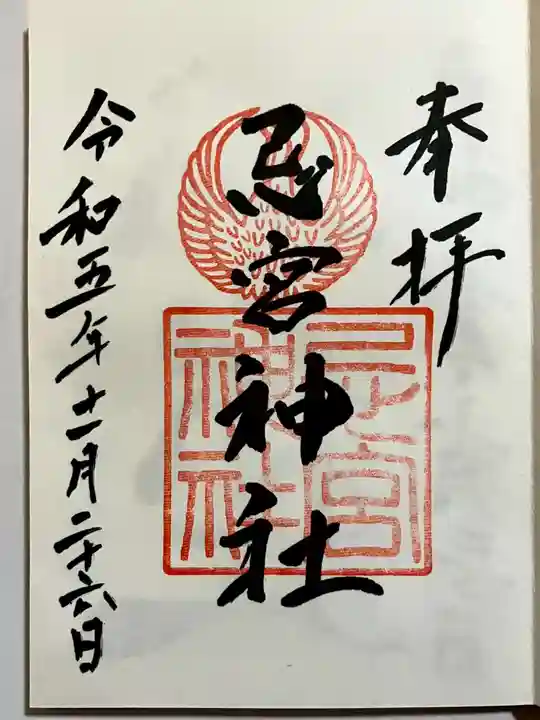 奉拝
忌宮神社
忌宮
神社
令和五年十一月二十六日